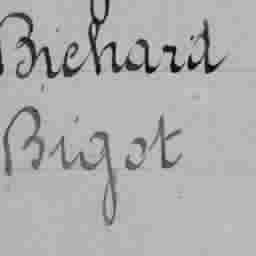 Bichard
Bigot